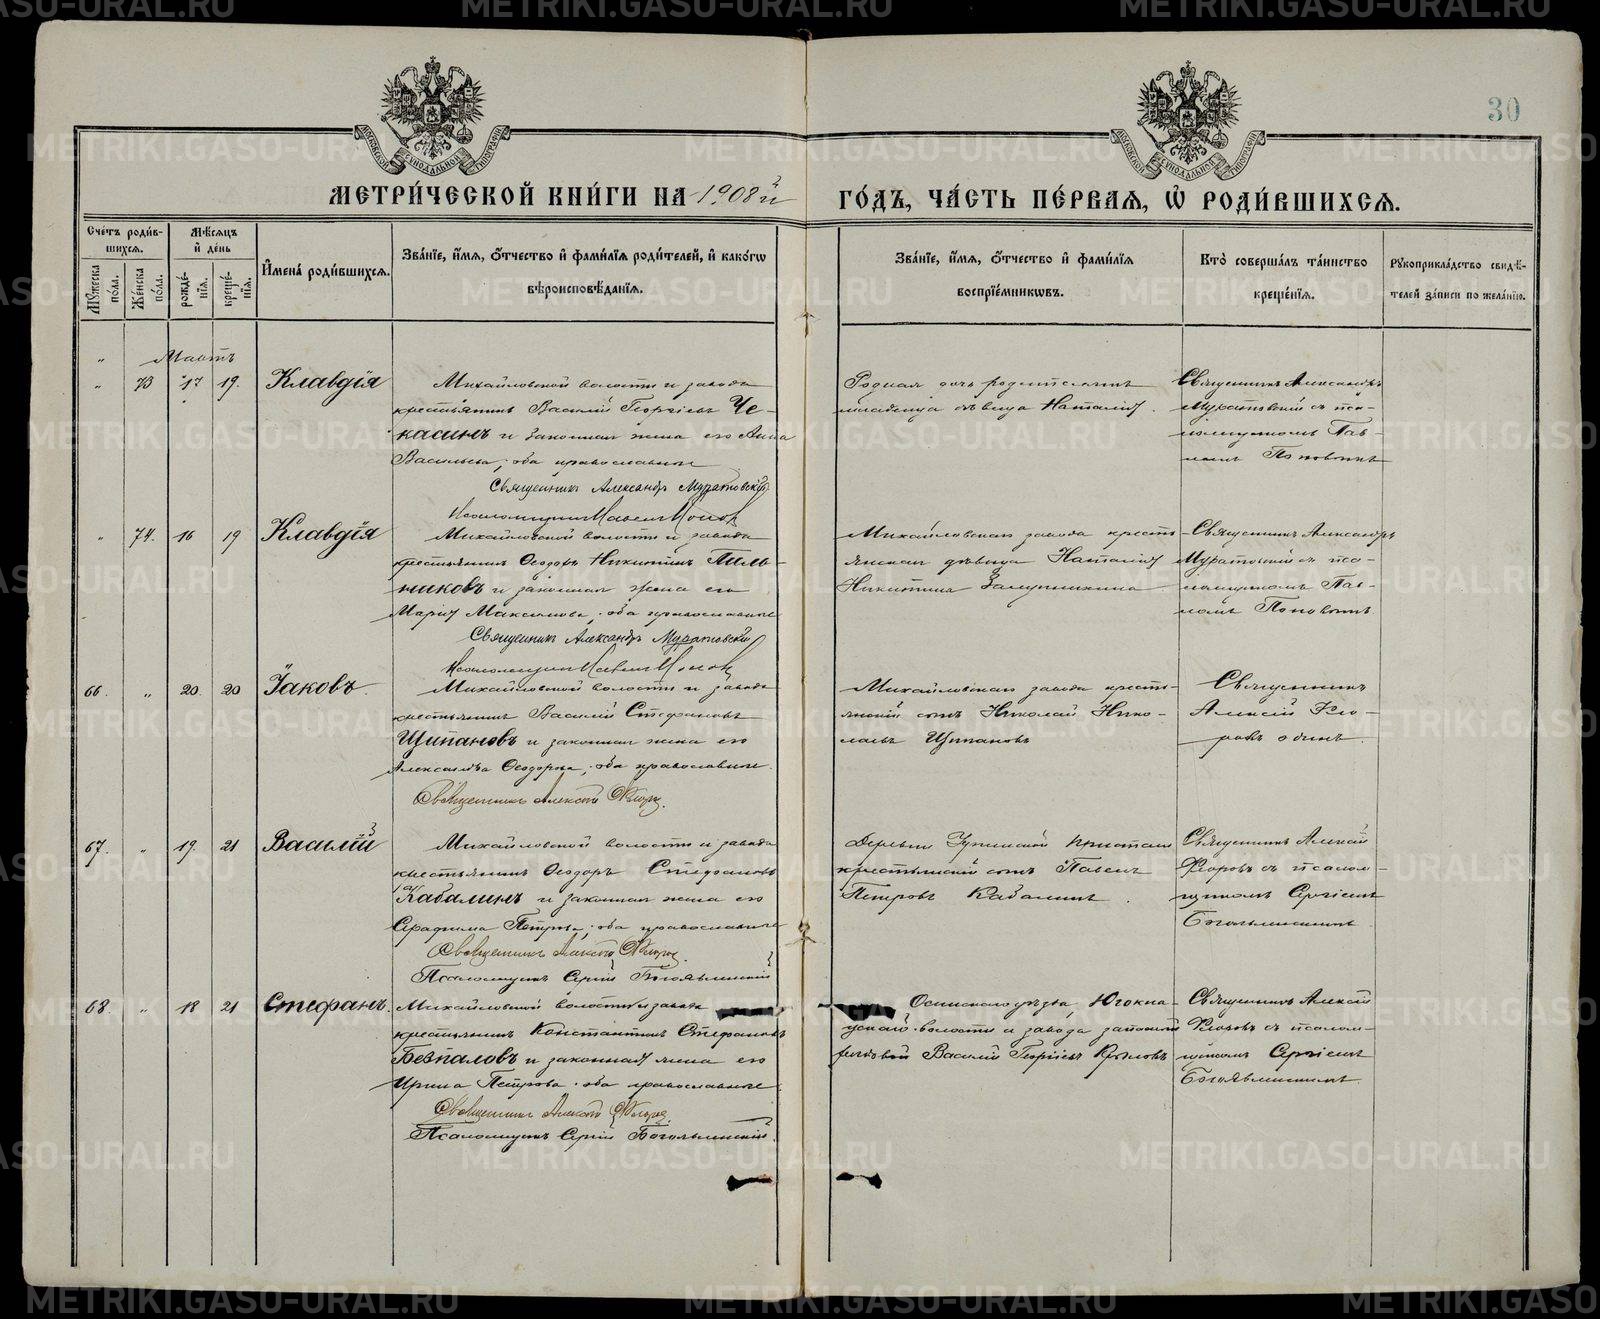 30
МОСКОВСКОЙ СУНОДАЛЬНОЙ ТИПОГРАФІИ
МОСКОВСКОЙ СУНОДАЛЬНОЙ ТИПОГРАФІИ
МЕТРИ́ЧЕСКОЙ КНИ́ГИ НА 1908й ГО́ДЪ, ЧА́СТЬ ПЕ́РВАѦ, Ѡ҆ РОДИ́ВШИХСѦ.
Сче́тъ роди́в-
шихсѧ.
Мꙋ́жеска по́ла.
Же́нска по́ла.
Мѣ́сѧцъ
и҆ де́нь
рожде́-
нїѧ.
креще́-
нїѧ.
И҆мена̀ роди́вшихсѧ.
Зва́нїе, и҆́мѧ, ѻ҆́тчество и҆ фами́лїѧ роди́телей, и҆ како́гѡ
вѣроисповѣ́данїѧ.
Зва́нїе, и҆́мѧ, ѻ҆́тчество и҆ фами́лїѧ
воспрїе́мникѡвъ.
Кто̀ соверша́лъ та́инство
креще́нїѧ.
Рꙋкоприкла́дство свидѣ́-
телей за́писи по жела́нїю.
" Мартъ
" 73 17 19. Клавдія
Михайловской волости и завода
крестьянинъ Василій Георгіевъ Че-
касинъ и законная жена его Анна
Васильева; оба православные
Священникъ Александръ Муратовскій
Псаломщикъ Павелъ Поповъ
Родная дочь родителямъ
младенца дѣвица Наталія.
Священникъ Александръ
Муратовскій съ пса-
ломщикомъ Пав-
ломъ Поповымъ
" 74. 16 19 Клавдія
Михайловской волости и завода
крестьянинъ Ѳеодоръ Никитинъ Пиль-
никовъ и законная жена его
Марія Максимова; оба православные
Священникъ Александръ Муратовскій
Псаломщикъ Павелъ Поповъ
Михайловскаго завода кресть-
янская дѣвица Наталія
Никитина
Священникъ Александръ
Муратовскій съ пса-
ломщикомъ Пав-
ломъ Поповымъ
66. " 20. 20 Іаковъ.
Михайловской волости и завода
крестьянинъ Василій Стефановъ
Щипановъ и законная жена его
Александра Ѳеодорова; оба православные.
Священникъ Алексій Флоровъ.
Михайловскаго завода кресть-
янскій сынъ Николай Нико-
лаевъ Щипановъ
Священникъ
Алексій Фло-
ровъ одинъ.
67. " 19. 21 Василій
Михайловской волости и завода
крестьянинъ Ѳеодоръ Стефановъ
Кабалинъ и законная жена его
Серафима Петрова; оба православные
Священникъ Алексій Флоровъ.
Псаломщикъ Сергій Богоявленскій
Деревни Пристани
крестьянскій сынъ Павелъ
Петровъ Кабалинъ.
Священникъ Алексій
Флоровъ съ псалом-
щикомъ Сергіемъ
Богоявленскимъ
68. " 18 21 Стефанъ.
Михайловской волости и завода
крестьянинъ Константинъ Стефановъ
Безпаловъ и законная жена его
Ирина Петрова; оба православные
Священникъ Алексій Флоровъ.
Псаломщикъ Сергій Богоявленскій.
Осинскаго уѣзда, Югокна-
уфской волости и завода запасный
рядовой Василій Георгіевъ Крыловъ
Священникъ Алексій
Флоровъ съ псалом-
щикомъ Сергіемъ
Богоявленскимъ.
METRIKI.GASO-URAL.RU